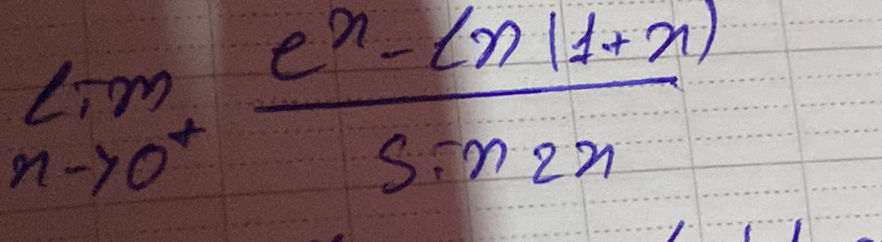 lim x→0⁺ (e^x - ln(1+x)) / (sin 2x)